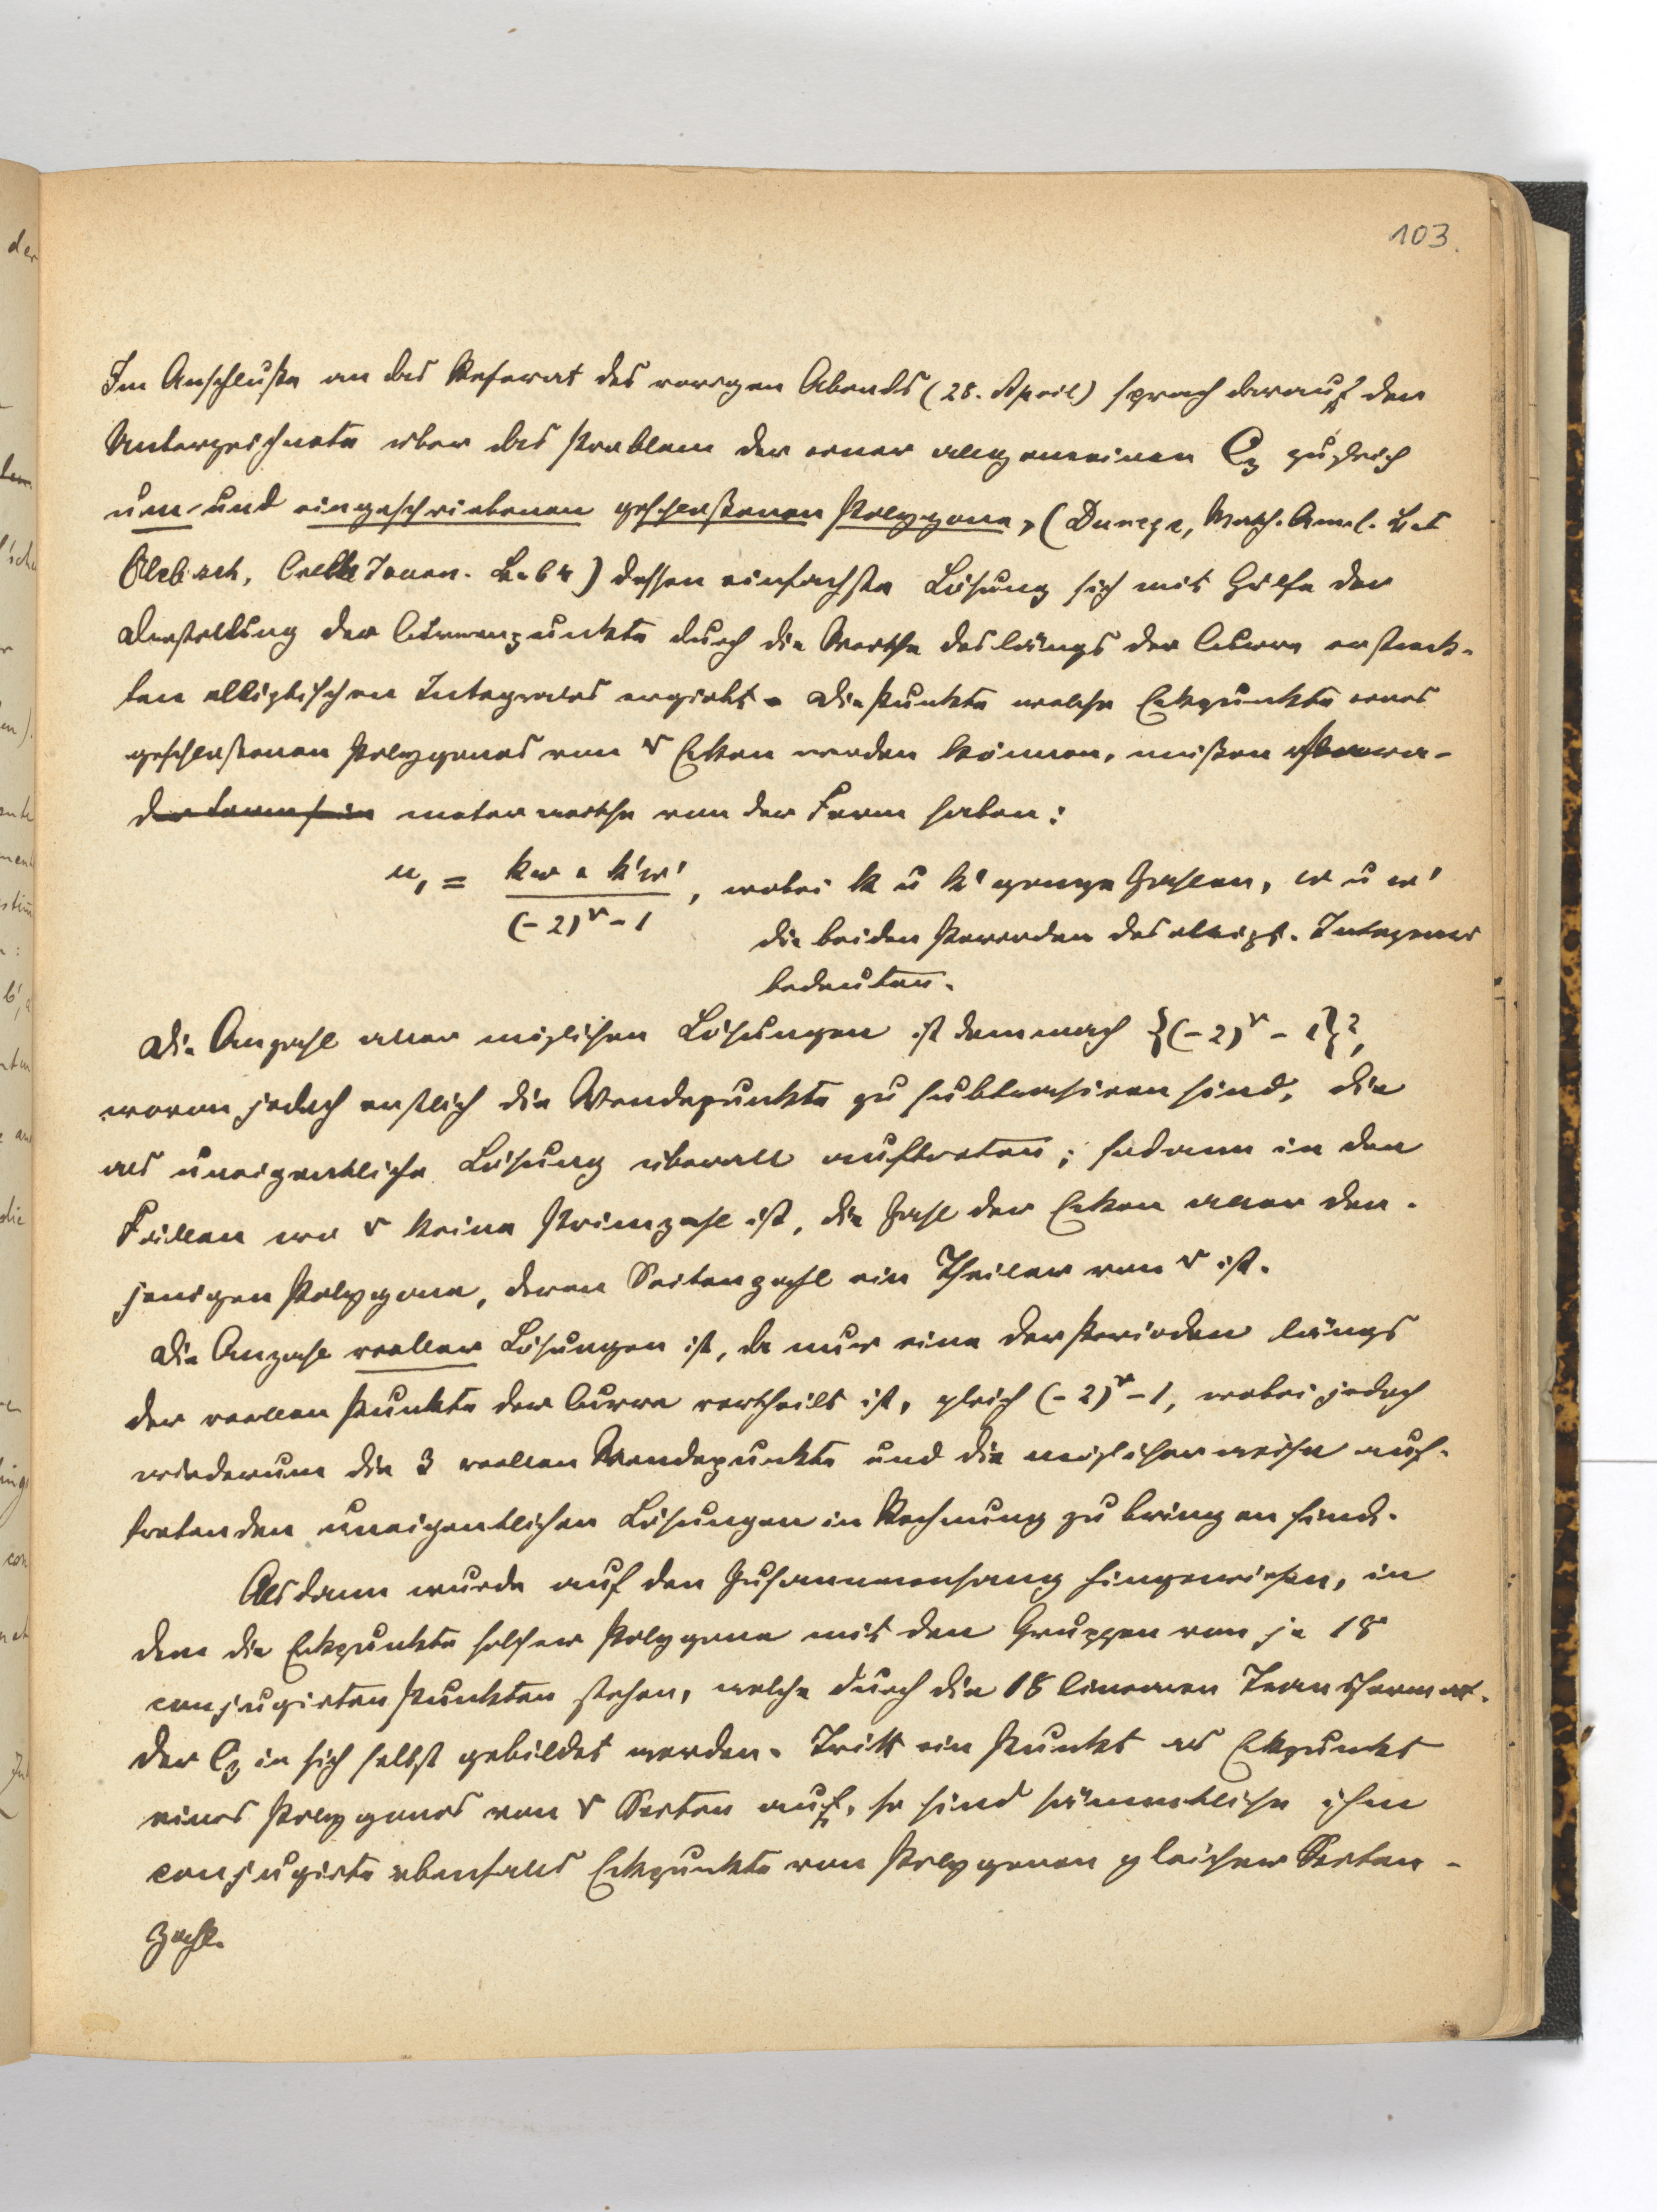 103.
Im Anschluße an das Referat des vorigen Abends (28. April) sprach darauf der
Unterzeichnete über das Problem der einer allgemeinen C₃ zugleich
um- und eingeschriebenen geschloßenen Polygone, (Durege, Math. Annal.
Clebsch, Crelle Journ. B. 64) dessen einfachste Lösung sich mit Hülfe der
Darstellung der Curvenpunkte durch die Werthe des längs der Curve erstreck-
ten elliptischen Integrales ergiebt. Die Punkte welche Eckpunkte eines
geschloßenen Polygones von r Ecken werden können, müßen
der Form sein meterwerthe von der Form haben:
u₁ = (kw + k'w') / ((-2)^r - 1), wobei k u k' ganze Zahlen, w u w'
die beiden Perioden des ellipt. Integrals
bedeuten.
Die Anzahl aller möglichen Lösungen ist demnach {(-2)^r - 1}²,
wovon jedoch erstlich die Wendepunkte zu subtrahiren sind, die
als uneigentliche Lösung überall auftreten; sodann in den
Fällen wo r keine Primzahl ist, die Zahl der Ecken aller der-
jenigen Polygone, deren Seitenzahl ein Theiler von r ist.
Die Anzahl reeller Lösungen ist, da nur eine der Perioden längs
der reellen Punkte der Curve vertheilt ist, gleich (-2)^r - 1, wobei jedoch
wiederum die 3 reellen Wendepunkte und die möglicherweise auf-
tretenden uneigentlichen Lösungen in Rechnung zu bringen sind.
Alsdann wurde auf den Zusammenhang hingewiesen, in
dem die Eckpunkte solcher Polygone mit den Gruppen von je 18
conjugirten Punkten stehen, welche durch die 18 linearen Transformat.
der C₃ in sich selbst gebildet werden. Tritt ein Punkt als Eckpunkt
eines Polygones von r Seiten auf, so sind sämmtliche ihm
conjugirte ebenfalls Eckpunkte von Polygonen gleicher Seiten-
zahl.